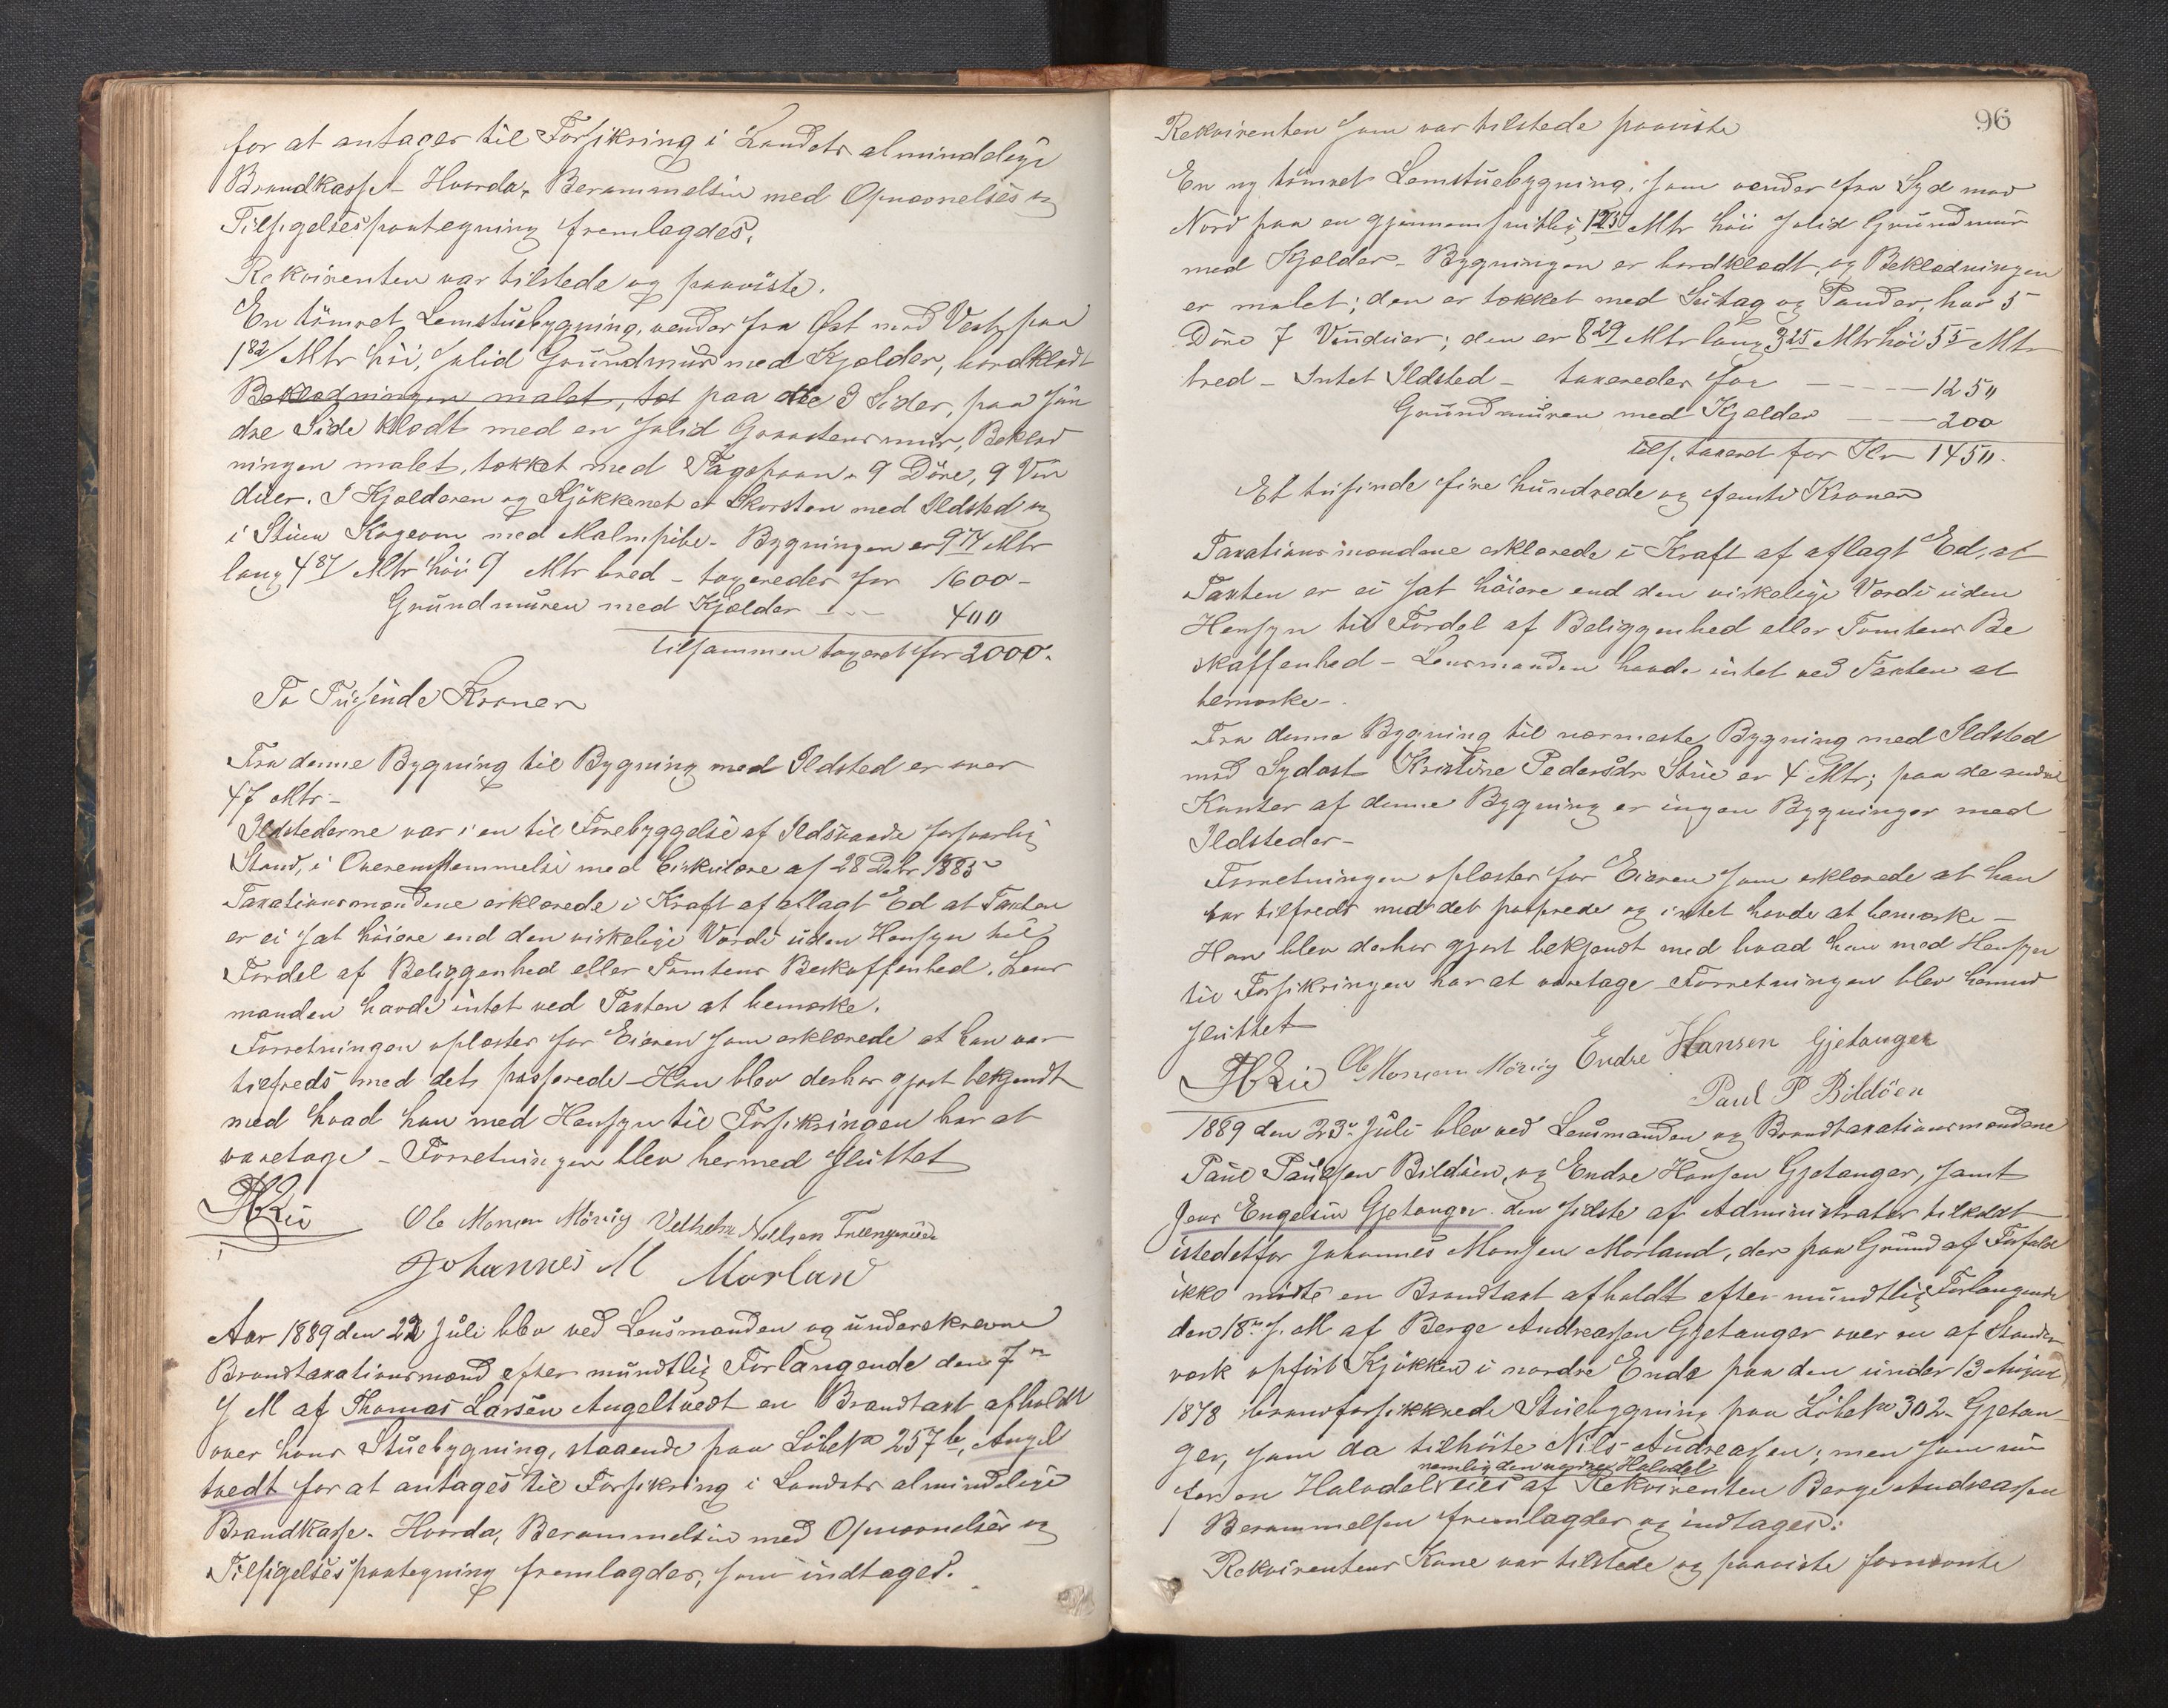 for at antages til Forsikring i Landets almindelige
Brandkasse. Hvorda, Berammelsen med Opnævnelses og
Tilsigelsespaategning fremlagdes.
Rekvirenten var tilstede og paaviste.
En tömret Lemstuebygning, vender fra Øst mod Vest, paa
1 82/ Mtr höi, solid Grundmur med Kjelder, bordklædt
Beklædningen malet, tæ paa de 3 Sider, paa søn
dre Side klædt med en solid Graastensmur, Beklæd
ningen malet, tækket med Tagspaan. 9 Döre, 9 Vin
duer. I Kjelderen og Kjökkenet et Skorsten med Ildsted og
i Stuen Kogeovn med Malmpibe. Bygningen er 9 74 Mtr
lang 4 87/ Mtr höi 9 Mtr bred – taxeredes for 1600 –
Grundmuren med Kjelder – – 400
tilsammen taxeret for 2000.
To Tusinde Kroner
Fra denne Bygning til Bygning med Ildsted er over
47 Mtr –
Ildstederne var i en til Forebyggelse af Ildsvaade forsvarlig
Stand, i Overensstemmelse med Cirkulære af 28 Debr 1885
Taxationsmændene erklærede i Kraft af aflagt Ed at Taxten
er ei sat höiere end den virkelige Værdi uden Hensyn til
Fordel af Beliggenhed eller Tomtens Beskaffenhed. Lens
manden havde intet ved Taxten at bemærke.
Forretningen oplæstes for Eieren som erklærede at han var
tilfreds med det passerede – Han blev derhos gjort bekjendt
med hvad han med Hensyn til Forsikringen har at
varetage – Forretningen blev hermed sluttet
Ole Monsen Mörvig Vilhelm Nielsen
Johannes M Morland
Aar 1889 den 22 Juli blev ved Lensmanden og underskrevne
Brandtaxationsmænd efter mundtlig Forlangende den 7de
s M af Thomas Larsen Angeltvedt en Brandtaxt afholdt
over hans Stuebygning, staaende paa Löbe No 257 b, Angel
tvedt for at antages til Forsikring i Landets almindelige
Brandkasse. Hvorda, Berammelsen med Opnævnelses og
Tilsigelsespaategning fremlagdes, som indtages.
96
Rekvirenten som var tilstede paaviste
En ny tömret Lemstuebygning, som vender fra Syd mod
Nord paa en gjennemsnitlig 1 25/ Mtr höi solid Grundmur
med Kjelder – Bygningen er bordklædt, og Beklædningen
er malet; den er tækket med Sutag og Pander, har 5
Döre 7 Vinduer; den er 8 29 Mtr lang 3 25 Mtr höi 5 5 Mtr
bred – Intet Ildsted – taxeredes for – – – – – 1250
Grundmuren med Kjelder – – – 200
tils. taxeret for Kr 1450.
Et tusinde fire hundrede og femti Kroner
Taxationsmændene erklærede i Kraft af aflagt Ed, at
Taxten er ei sat höiere end den virkelige Værdi uden
Hensyn til Fordel af Beliggenhed eller Tomtens Be
skaffenhed – Lensmanden havde intet ved Taxten at
bemærke –
Fra denne Bygning til nærmeste Bygning med Ildsted
mod Sydost Kristine Pedersdr Stue er 4 Mtr; paa de andre
Kanter af denne Bygning er ingen Bygninger med
Ildsteder –
Forretningen oplæstes for Eieren som erklærede at han
var tilfreds med det passerede og intet havde at bemærke –
Han blev derhos gjort bekjendt med hvad han med Hensyn
til Forsikringen har at varetage Forretningen blev hermed
sluttet
Ole Monsen Mörvig Endre Hansen Gjetanger
Paul P Bildöen
1889 den 23de Juli blev ved Lensmanden og Brandtaxationsmændene
Paul Paulsen Bildöen, og Endre Hansen Gjetanger, samt
Jens Engelsen Gjetanger den sidste af Administrator tilkaldt
istedetfor Johannes Monsen Morland, der paa Grund af Forfald
ikke mödte en Brandtaxt afholdt efter mundtlig Forlangende
den 18de s. M af Berge Andreassen Gjetanger over en af Stander
værk opfört Kjökken i nordre Ende paa den under 13 August
1878 brandforsikkrede Stuebygning paa Löbe No 302 Gjetan
ger, som da tilhörte Nils Andreassen; men som nu
nemlig den Halvdel
for en Halvdel eies af Rekvirenten Berge Andreassen
Berammelsen fremlagdes og indtages:
Rekvirentens Kone var tilstede og paaviste fornævnte